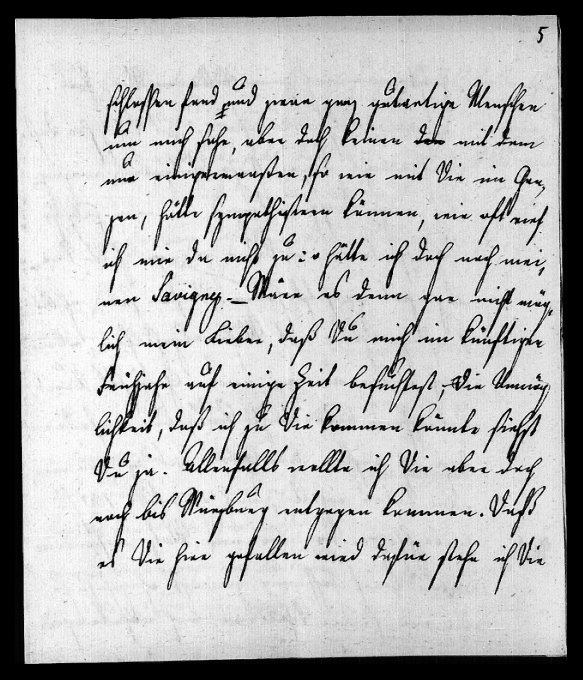 5
schlossen fand und zwar ganz gutartige Menschen
um mich sehe, aber doch keinen mit dem
nur einigermassen, so wie mit Dir im Gan,
zen, hätte sympathisiren können, wie oft rief
ich mir da nicht zu: o hätte ich doch noch mei,
nen Savigny. — Wäre es denn gar nicht mög,
lich mein Lieber, daß Du mich im künftigen
Frühjahr auf einige Zeit besuchtest, Die Unmög
lichkeit, daß ich zu Dir kommen könnte siehst
Du ja. Allenfalls wollte ich Dir aber doch
noch bis Würzburg entgegen kommen. Daß
es Dir hier gefallen wird dafür stehe ich Dir